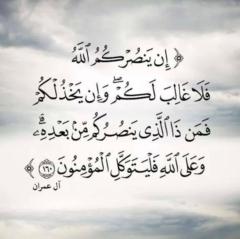 ﴿ إِن يَنصُرْكُمُ اللَّهُ
فَلَا غَالِبَ لَكُمْ ۖ وَإِن يَخْذُلْكُمْ
فَمَن ذَا الَّذِي يَنصُرُكُم مِّن بَعْدِهِ ۗ
وَعَلَى اللَّهِ فَلْيَتَوَكَّلِ الْمُؤْمِنُونَ ١٦٠ ﴾
آل عمران